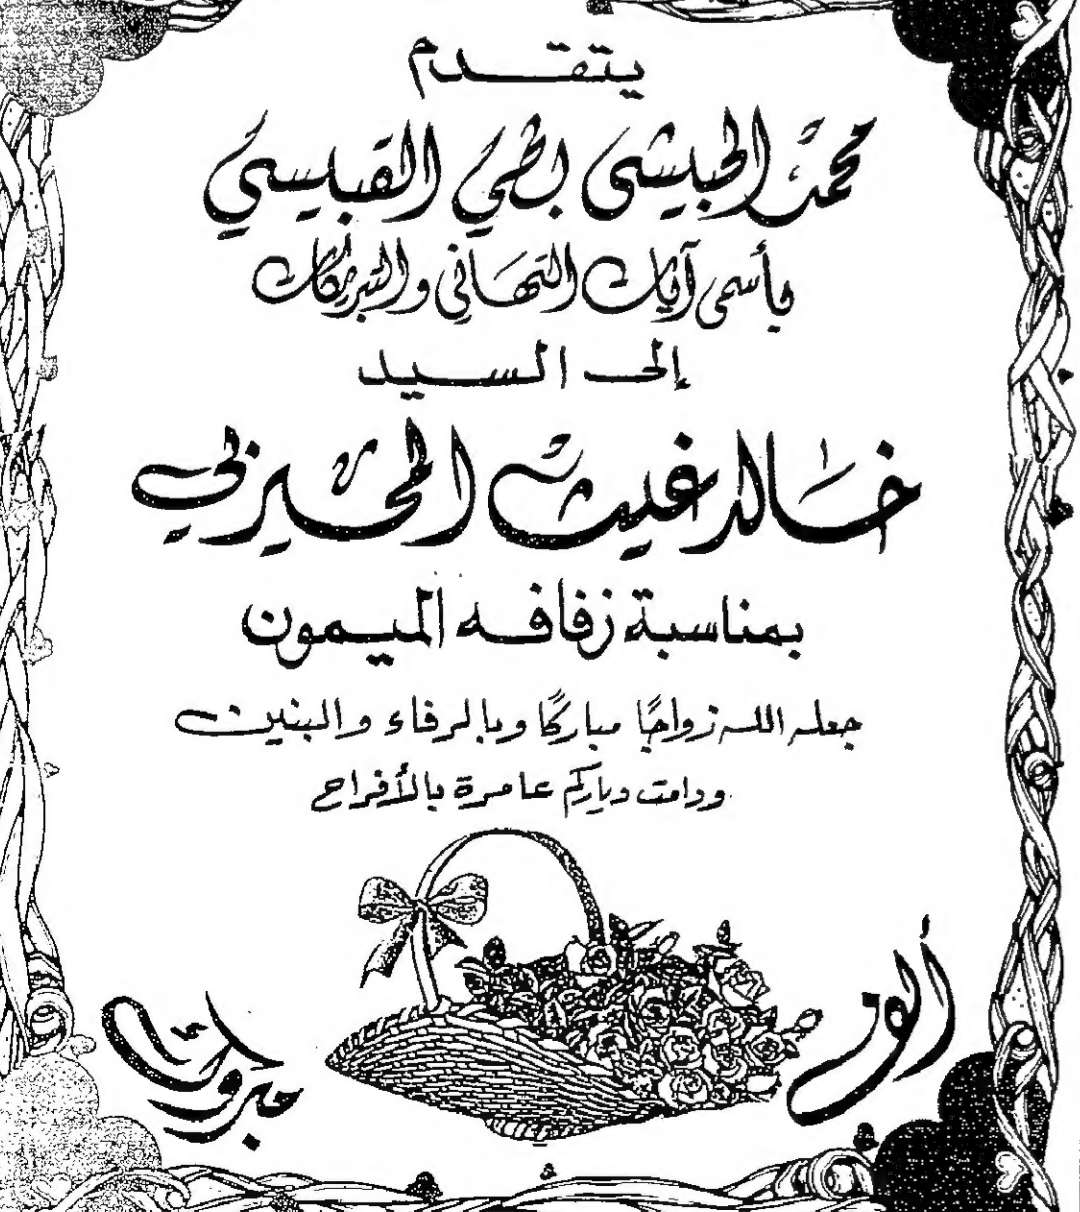 يتقدم
محمد الحبيشى الحي القبيسي
بأسمى آيات التهاني والتبريكات
إلى السيد
خالد غيث المحيربي
بمناسبة زفافه الميمون
جعله الله زواجًا مباركًا وبالرفاء والبنين
ودامت دياركم عامرة بالأفراح
ألف مبروك